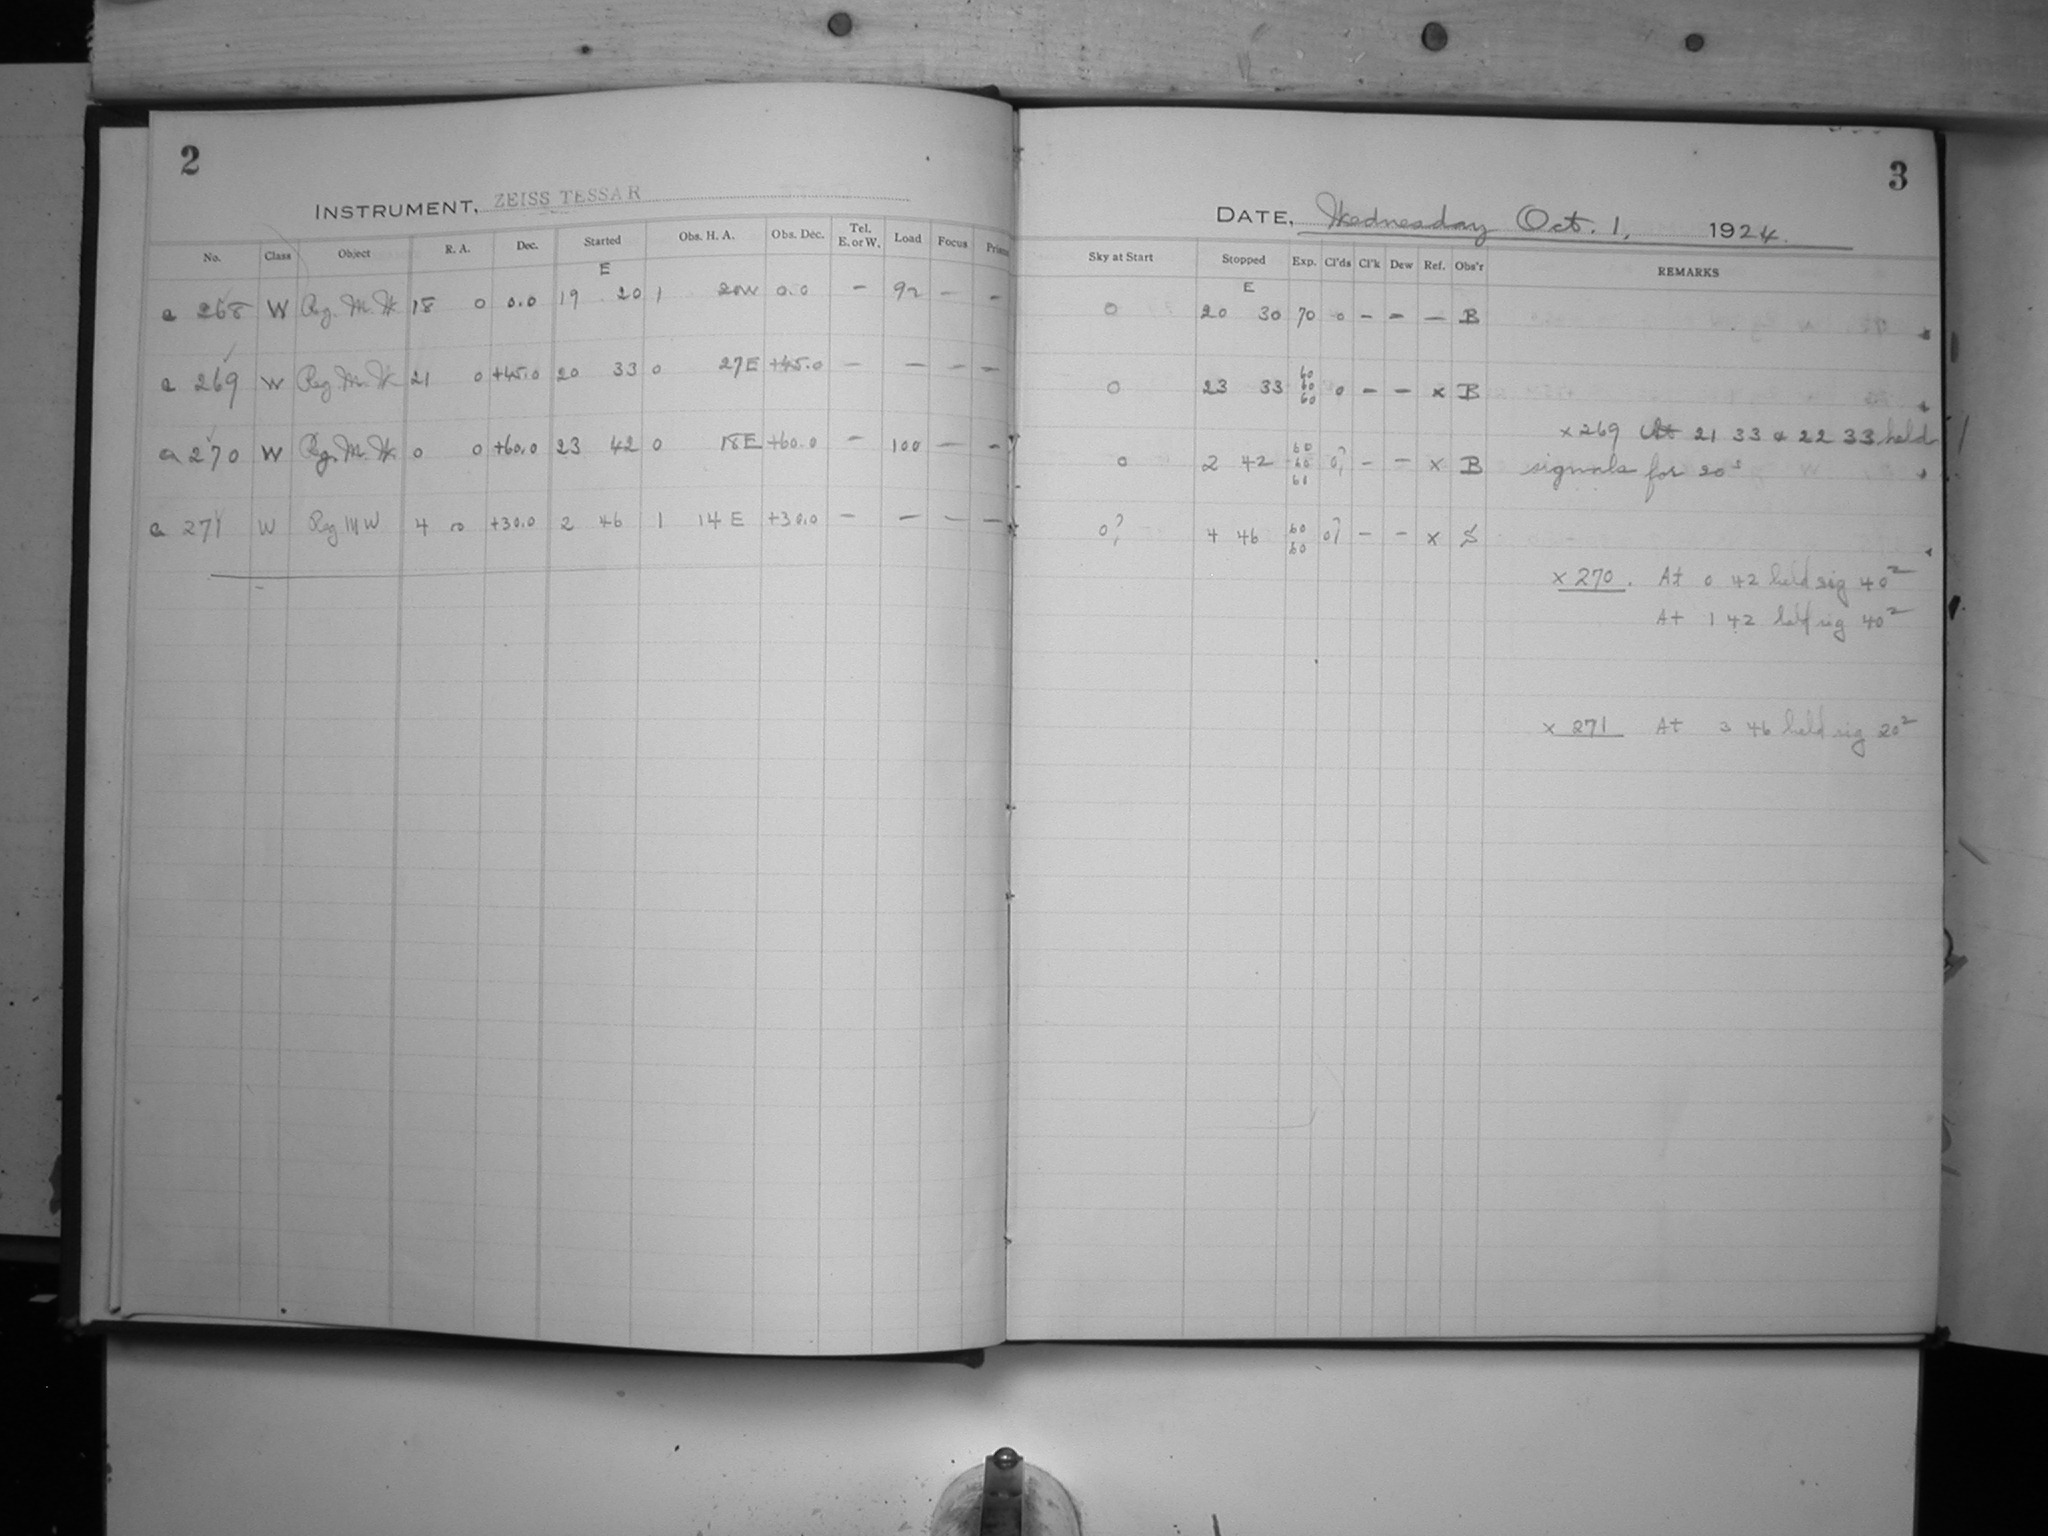 2
INSTRUMENT, ZEISS TESSAR
No. Class Object R. A. Dec. Started Obs. H. A. Obs. Dec. Tel. E. or W. Load Focus Prisms
E
a 268 W Reg. M. W. 18 0 0.0 19 20 1 20W 0.0 – 92 – –
a 269 W Reg. M. W. 21 0 +45.0 20 33 0 27E +45.0 – – – –
a 270 W Reg. M. W. 0 0 +60.0 23 42 0 18E +60.0 – 100 – –
a 271 W Reg M W 4 0 +30.0 2 46 1 14 E +30.0 – – – –
3
DATE, Wednesday Oct. 1, 1924.
Sky at Start Stopped Exp. Cl'ds Cl'k Dew Ref. Obs'r REMARKS
E
0 20 30 70 0 – – – B
0 23 33 60 60 60 0 – – x B
x 269 At 21 33 & 22 33 held
0 2 42 60 60 60 0? – – x B signals for 20s
0? 4 46 60 60 0? – – x S
x 270. At 0 42 held sig 40s
At 1 42 held sig 40s
x 271 At 3 46 held sig 20s